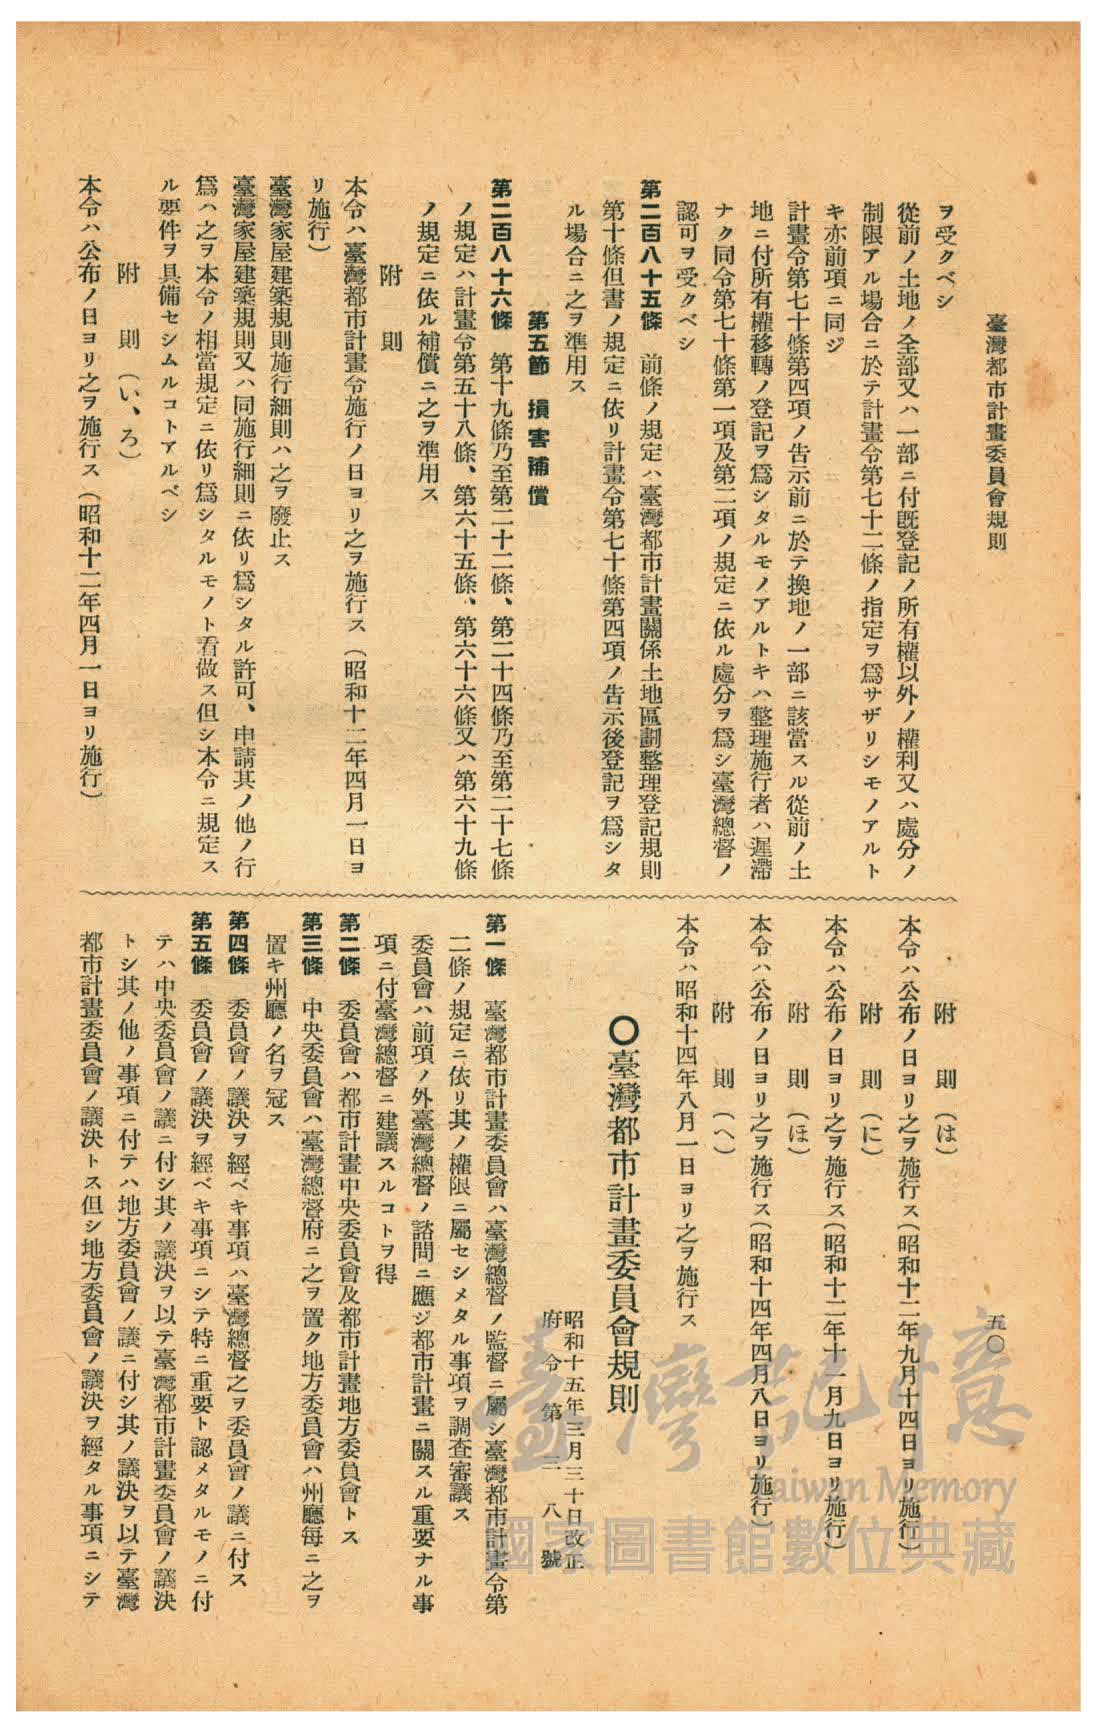 臺灣都市計畫委員會規則
五〇
ヲ受クベシ
從前ノ土地ノ全部又ハ一部ニ付既登記ノ所有權以外ノ權利又ハ處分ノ
制限アル場合ニ於テ計畫令第七十二條ノ指定ヲ爲サザリシモノアルト
キ亦前項ニ同ジ
計畫令第七十條第四項ノ告示前ニ於テ換地ノ一部ニ該當スル從前ノ土
地ニ付所有權移轉ノ登記ヲ爲シタルモノアルトキハ整理施行者ハ遲滯
ナク同令第七十條第一項及第二項ノ規定ニ依ル處分ヲ爲シ臺灣總督ノ
認可ヲ受クベシ
第二百八十五條 前條ノ規定ハ臺灣都市計畫關係土地區劃整理登記規則
第十條但書ノ規定ニ依リ計畫令第七十條第四項ノ告示後登記ヲ爲シタ
ル場合ニ之ヲ準用ス
第五節 損害補償
第二百八十六條 第十九條乃至第二十二條、第二十四條乃至第二十七條
ノ規定ハ計畫令第五十八條、第六十五條、第六十六條又ハ第六十九條
ノ規定ニ依ル補償ニ之ヲ準用ス
附 則
本令ハ臺灣都市計畫令施行ノ日ヨリ之ヲ施行ス（昭和十二年四月一日ヨ
リ施行）
臺灣家屋建築規則施行細則ハ之ヲ廢止ス
臺灣家屋建築規則又ハ同施行細則ニ依リ爲シタル許可、申請其ノ他ノ行
爲ハ之ヲ本令ノ相當規定ニ依リ爲シタルモノト看做ス但シ本令ニ規定ス
ル要件ヲ具備セシムルコトアルベシ
附 則 （い、ろ）
本令ハ公布ノ日ヨリ之ヲ施行ス（昭和十二年四月一日ヨリ施行）
附 則 （は）
本令ハ公布ノ日ヨリ之ヲ施行ス（昭和十二年九月十四日ヨリ施行）
附 則 （に）
本令ハ公布ノ日ヨリ之ヲ施行ス（昭和十二年十一月九日ヨリ施行）
附 則 （ほ）
本令ハ公布ノ日ヨリ之ヲ施行ス（昭和十四年四月八日ヨリ施行）
附 則 （へ）
本令ハ昭和十四年八月一日ヨリ之ヲ施行ス
〇臺灣都市計畫委員會規則
昭和十五年三月三十日改正
府令第三八號
第一條 臺灣都市計畫委員會ハ臺灣總督ノ監督ニ屬シ臺灣都市計畫令第
二條ノ規定ニ依リ其ノ權限ニ屬セシメタル事項ヲ調査審議ス
委員會ハ前項ノ外臺灣總督ノ諮問ニ應ジ都市計畫ニ關スル重要ナル事
項ニ付臺灣總督ニ建議スルコトヲ得
第二條 委員會ハ都市計畫中央委員會及都市計畫地方委員會トス
第三條 中央委員會ハ臺灣總督府ニ之ヲ置ク地方委員會ハ州廳每ニ之ヲ
置キ州廳ノ名ヲ冠ス
第四條 委員會ノ議決ヲ經ベキ事項ハ臺灣總督之ヲ委員會ノ議ニ付ス
第五條 委員會ノ議決ヲ經ベキ事項ニシテ特ニ重要ト認メタルモノニ付
テハ中央委員會ノ議ニ付シ其ノ議決ヲ以テ臺灣都市計畫委員會ノ議決
トシ其ノ他ノ事項ニ付テハ地方委員會ノ議ニ付シ其ノ議決ヲ以テ臺灣
都市計畫委員會ノ議決トス但シ地方委員會ノ議決ヲ經タル事項ニシテ
臺灣記憶
Taiwan Memory
國家圖書館數位典藏